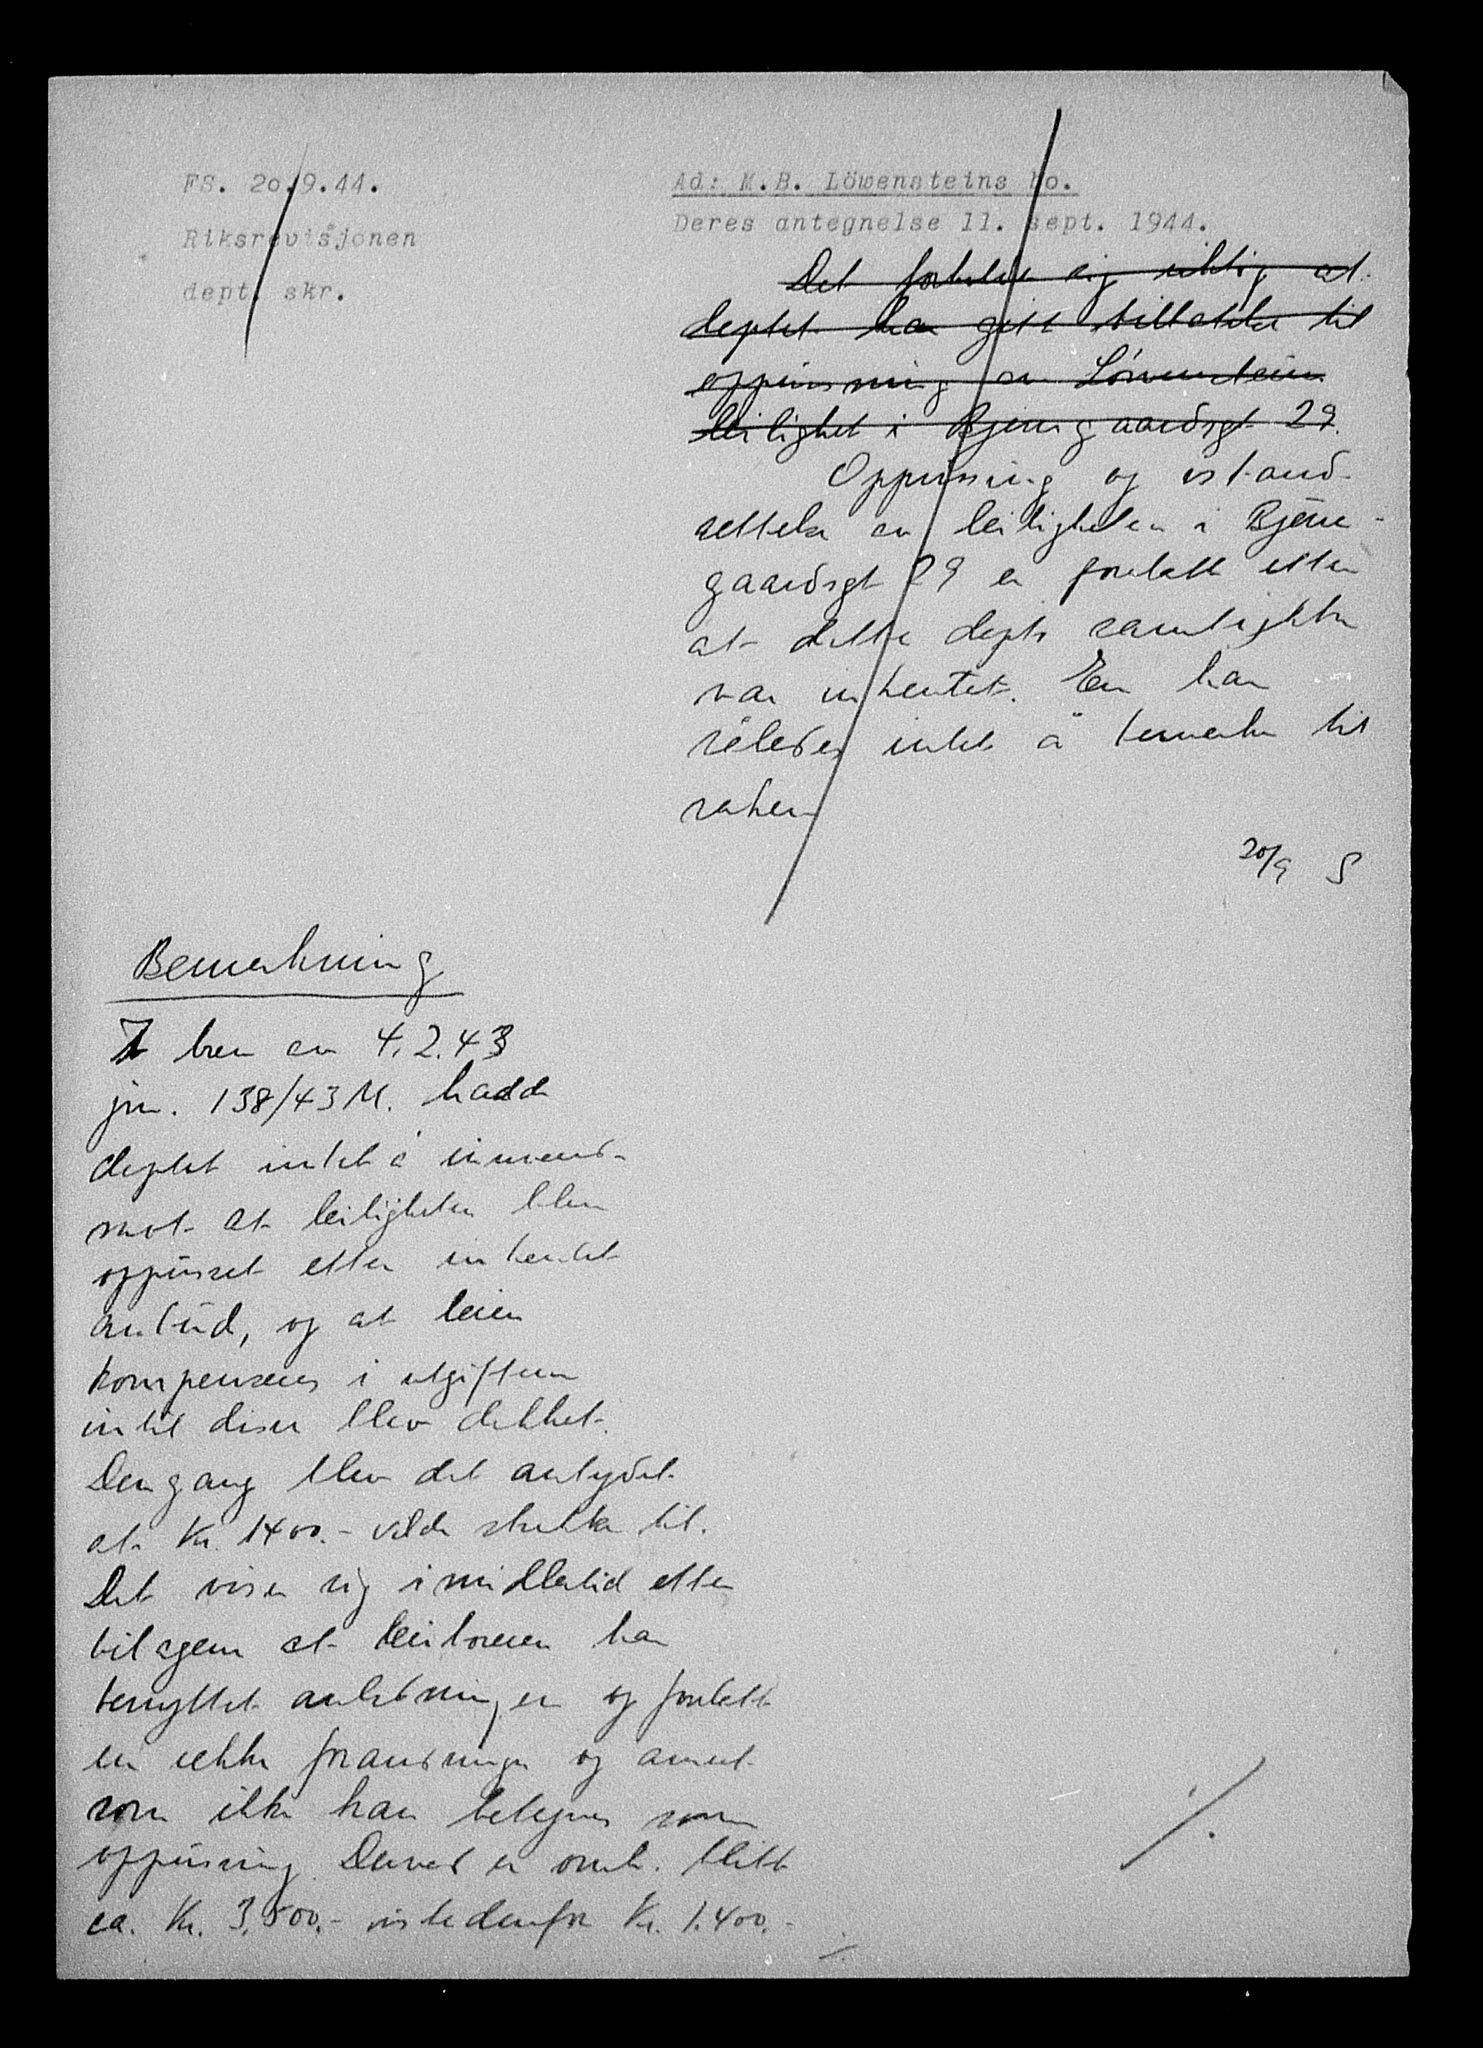 FS. 20.9.44.
Riksrevisjonen
dept. skr.
Ad: M.B. Löwensteins bo.
Deres antegnelse 11. sept. 1944.
Det forholder sig riktig at
deptet har gitt tillatelse til
oppussning av Löwenstein
leilighet i Bjerregaardsgt 29.
Oppussing og istand-
settelse av leiligheten i Bjerre-
gaardsgt 29 er foretatt etter
at dette depts samtykke
var innhentet. En har
således intet å bemerke til
saken
20/9 S
Bemerkning
I brev av 4.2.43
jnr. 138/43 M. hadde
deptet intet å innvende
mot at leiligheten blev
oppusset etter innhentet
anbud, og at leien
kompenseres i utgiftene
inntil disse blev dekket.
Den gang blev det antydet
at Kr. 1400.- vilde strekke til.
Det viser sig imidlertid etter
bilagene at leieboeren har
benyttet anledningen og foretatt
en rekke forandringer og annet
som ikke kan betegnes som
oppussing. Derved er omk. blitt
ca. Kr. 3.500.- istedenfor Kr. 1.400.-
./.